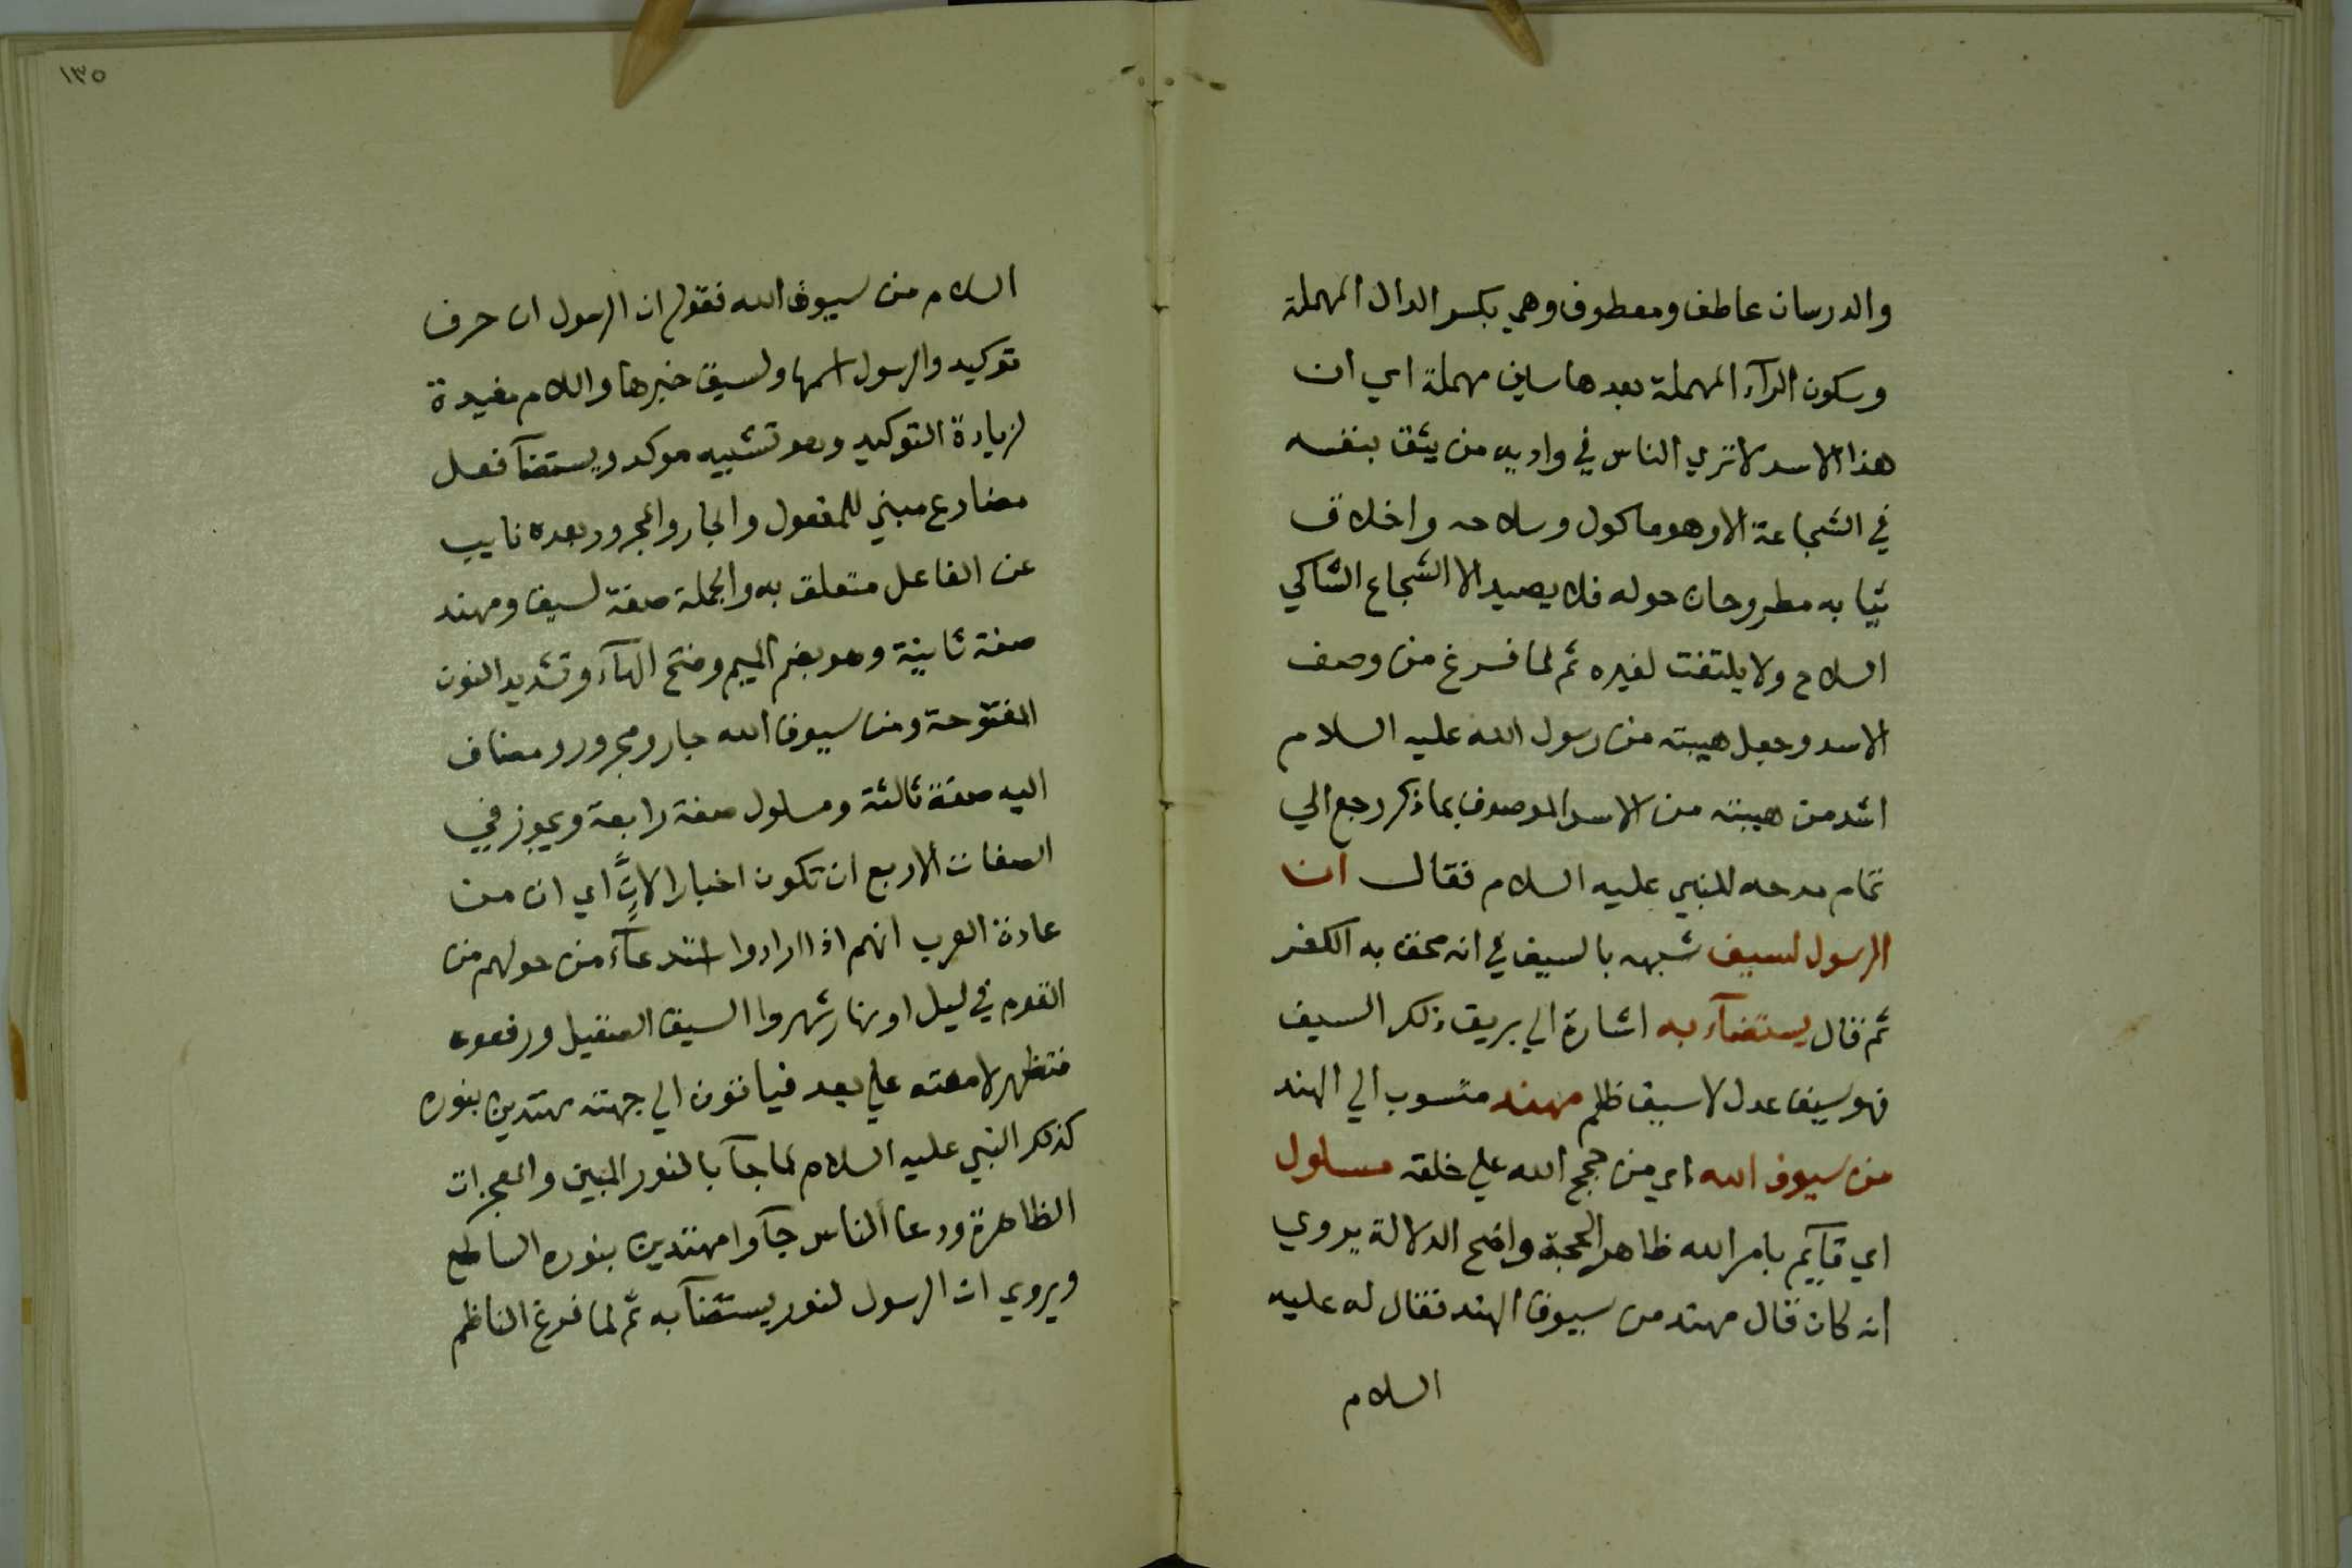 والدرسان عاطف ومعطوف وهي بكسر الدال المهملة
وسكون الرآء المهملة بعدها سين مهملة اي ان
هذا الاسد لا تري الناس في واديه من يثق بنفسه
في الشجاعة الا وهو ماكول وسلاحه واخلاق
ثيابه مطروحان حوله فلا يصيد الا الشجاع الشاكي
السلاح ولا يلتفت لغيره ثم لما فرغ من وصف
الاسد وجعل هيبته من رسول الله عليه السلام
اشد من هيبته من الاسد الموصوف بما ذكر رجع الي
تمام مدحه للنبي عليه السلام فقال ان
الرسول لسيف شبهه بالسيف في انه محق به الكفر
ثم قال يستضآء به اشارة الي بريق ذلك السيف
فهو سيف عدل لا سيف ظلم مهند منسوب الي الهند
من سيوف الله اي من حجج الله علي خلقه مسلول
اي قآيم بامر الله ظاهر الحجة واضح الدلالة يروي
انه كان قال مهند من سيوف الهند فقال له عليه
السلام
١٣٥
السلام من سيوف الله فقوله ان الرسول ان حرف
توكيد والرسول اسمها ولسيف خبرها واللام مفيدة
لزيادة التوكيد وهو تشبيه موكد ويستضآ فعل
مضارع مبني للمفعول والجار والمجرور بعده نايب
عن الفاعل متعلق به والجملة صفة لسيف ومهند
صفة ثانية وهو بضم الميم وفتح الهآء وتشديد النون
المفتوحة ومن سيوف الله جار ومجرور ومضاف
اليه صفة ثالثة ومسلول صفة رابعة ويجوز في
الصفات الاربع ان تكون اخبارا لاِنَّ اي ان من
عادة العرب انهم اذا ارادوا استدعآء من حولهم من
القوم في ليل او نهار شهروا السيف الصقيل ورفعوه
فتظهر لامعته علي بعد فياتون الي جهته مهتدين بنوره
كذلك النبي عليه السلام لما جآ بالنور المبين والمعجزات
الظاهرة ودعا الناس جآوا مهتدين بنوره الساطع
ويروي ان الرسول لنور يستضآ به ثم لما فرغ الناظم